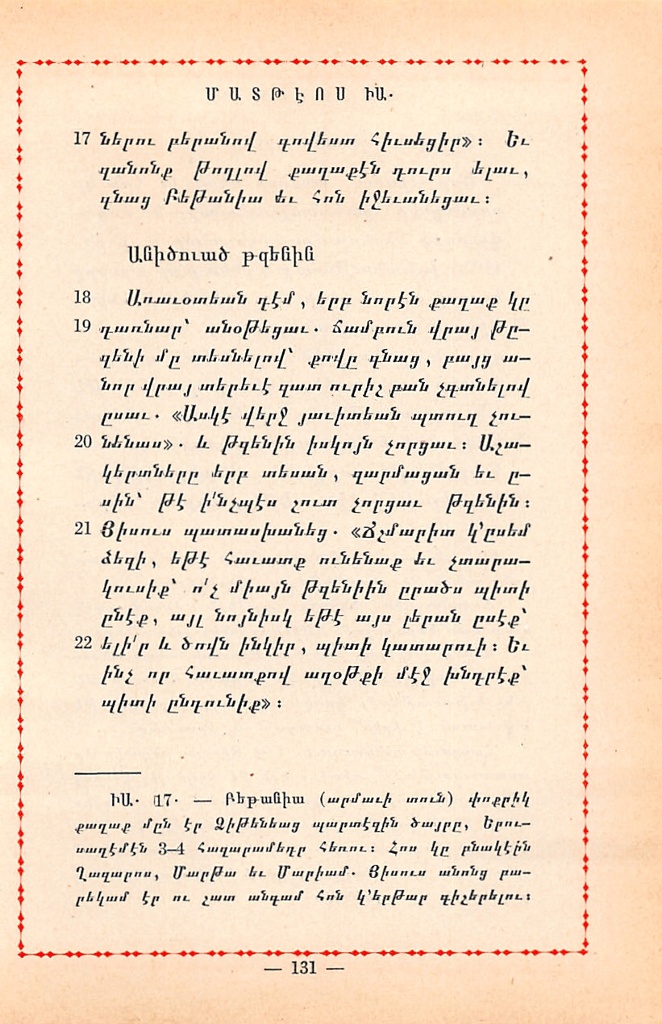 ՄԱՏԹԷՈՍ ԻԱ.
17 ներու բերանով գովեստ հիւսեցիր»։ Եւ
զանոնք թողլով քաղաքէն դուրս ելաւ,
գնաց Բեթանիա եւ հոն իջեւանեցաւ։
Անիծուած թզենին
18 Առաւօտեան դէմ, երբ նորէն քաղաք կը
19 դառնար՝ անօթեցաւ. ճամբուն վրայ թը—
զենի մը տեսնելով՝ քովը գնաց, բայց ա—
նոր վրայ տերեւէ զատ ուրիշ բան չգտնելով
ըսաւ. «Ասկէ վերջ յաւիտեան պտուղ չու—
20 նենաս». և թզենին իսկոյն չորցաւ։ Աշա—
կերտները երբ տեսան, զարմացան եւ ը—
սին՝ թէ ի՛նչպէս շուտ չորցաւ թզենին։
21 Յիսուս պատասխանեց. «Ճշմարիտ կ՚ըսեմ
ձեզի, եթէ հաւատք ունենաք եւ չտարա—
կուսիք՝ ո՛չ միայն թզենիին ըրածս պիտի
ընէք, այլ նոյնիսկ եթէ այս լերան ըսէք՝
22 ելի՛ր և ծովն ինկիր, պիտի կատարուի։ Եւ
ինչ որ հաւատքով աղօթքի մէջ խնդրէք՝
պիտի ընդունիք»։
ԻԱ. 17. — Բեթանիա (արմաւի տուն) փոքրիկ
քաղաք մըն էր Ձիթենեաց պարտէզին ծայրը, Երու—
սաղէմէն 3—4 հազարամեդր հեռու։ Հոս կը բնակէին
Ղազարոս, Մարթա եւ Մարիամ. Յիսուս անոնց բա—
րեկամ էր ու շատ անգամ հոն կ՚երթար գիշերելու։
— 131 —